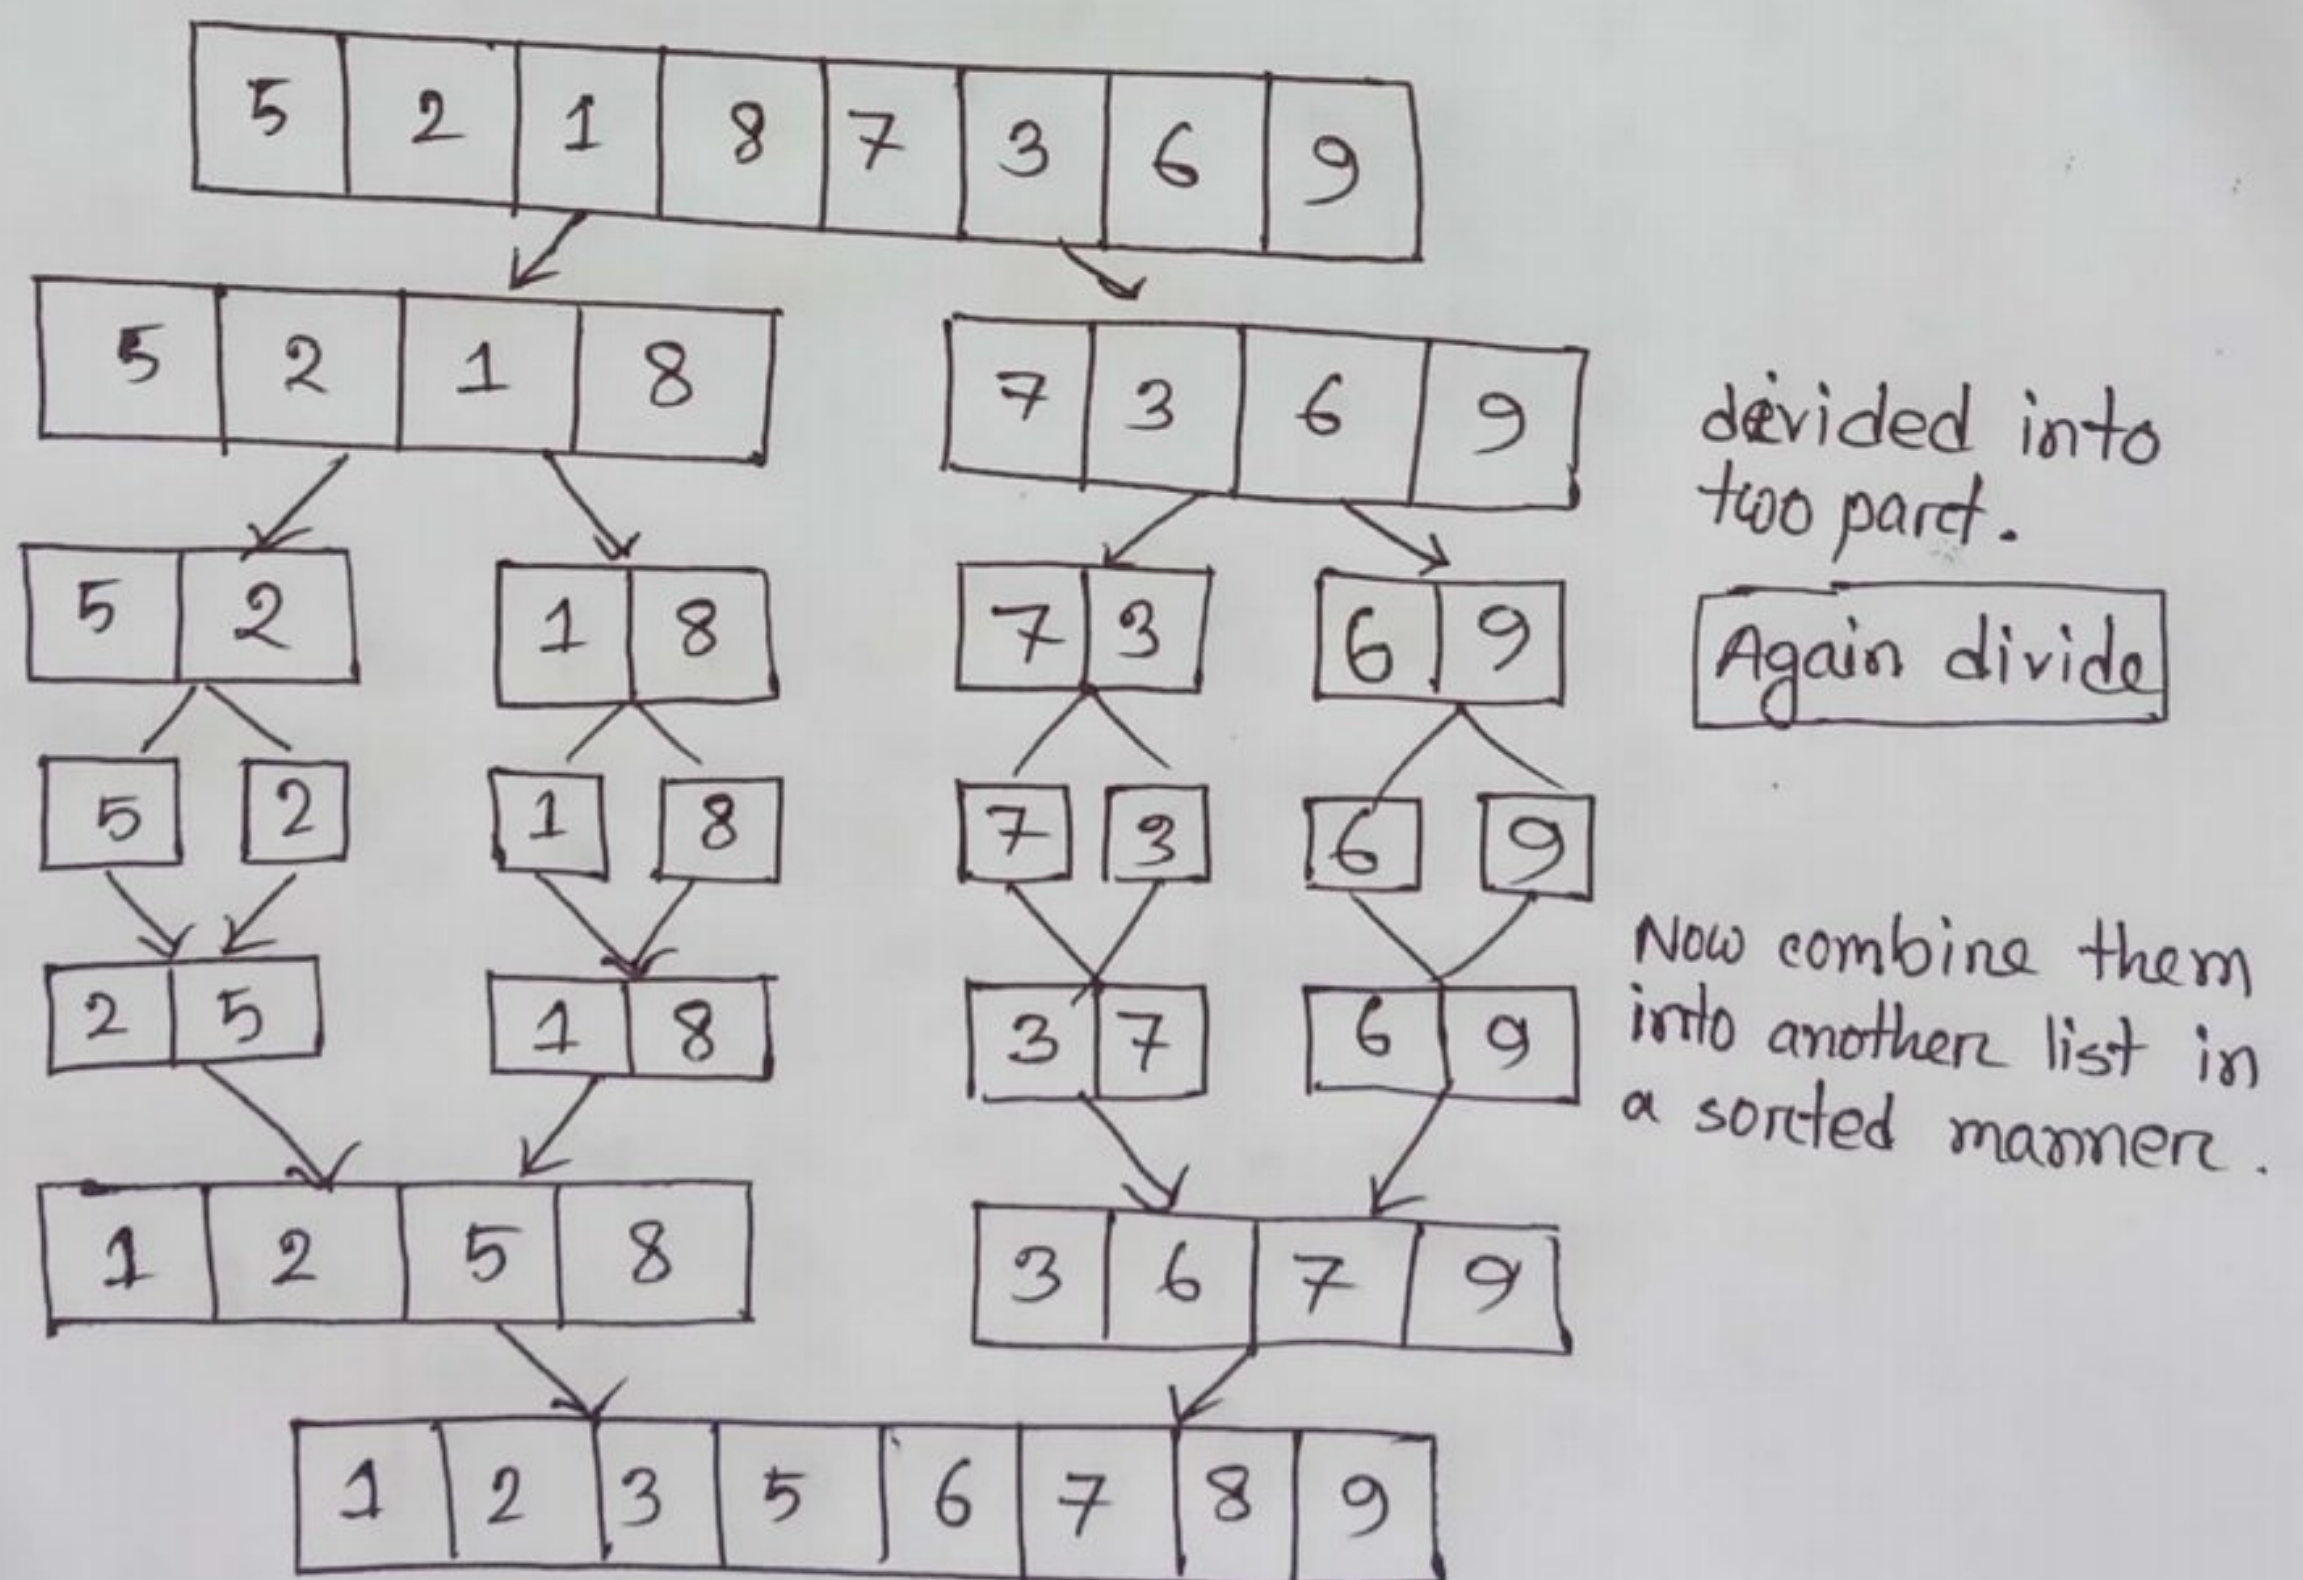 5 2 1 8 7 3 6 9
5 2 1 8 7 3 6 9
divided into
two part.
5 2 1 8 7 3 6 9
Again divide
5 2 1 8 7 3 6 9
Now combine them
into another list in
a sorted manner.
2 5 1 8 3 7 6 9
1 2 5 8 3 6 7 9
1 2 3 5 6 7 8 9